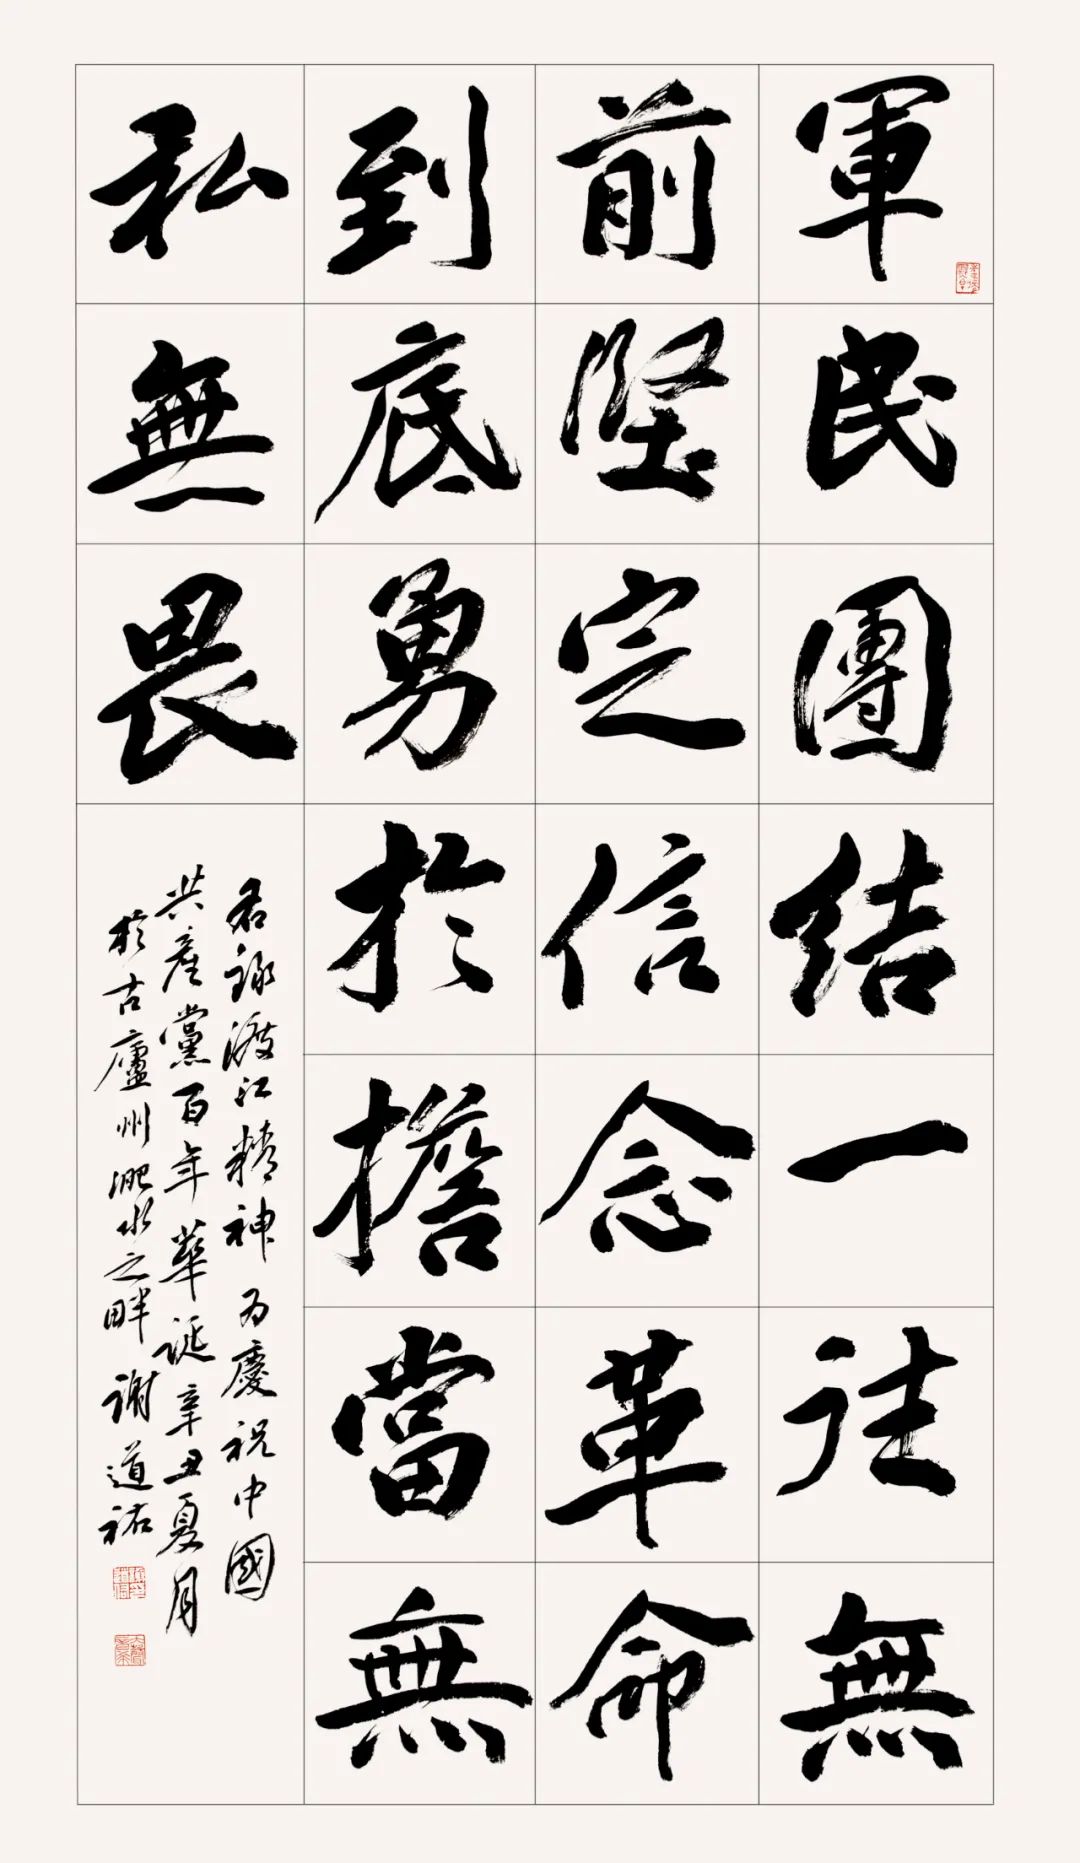 軍民團結一往無
前堅定信念革命
到底勇於擔當無
私無畏
名錄渡江精神為慶祝中國
共産黨百年華誕辛丑夏月
於古廬州淝水之畔謝道祐